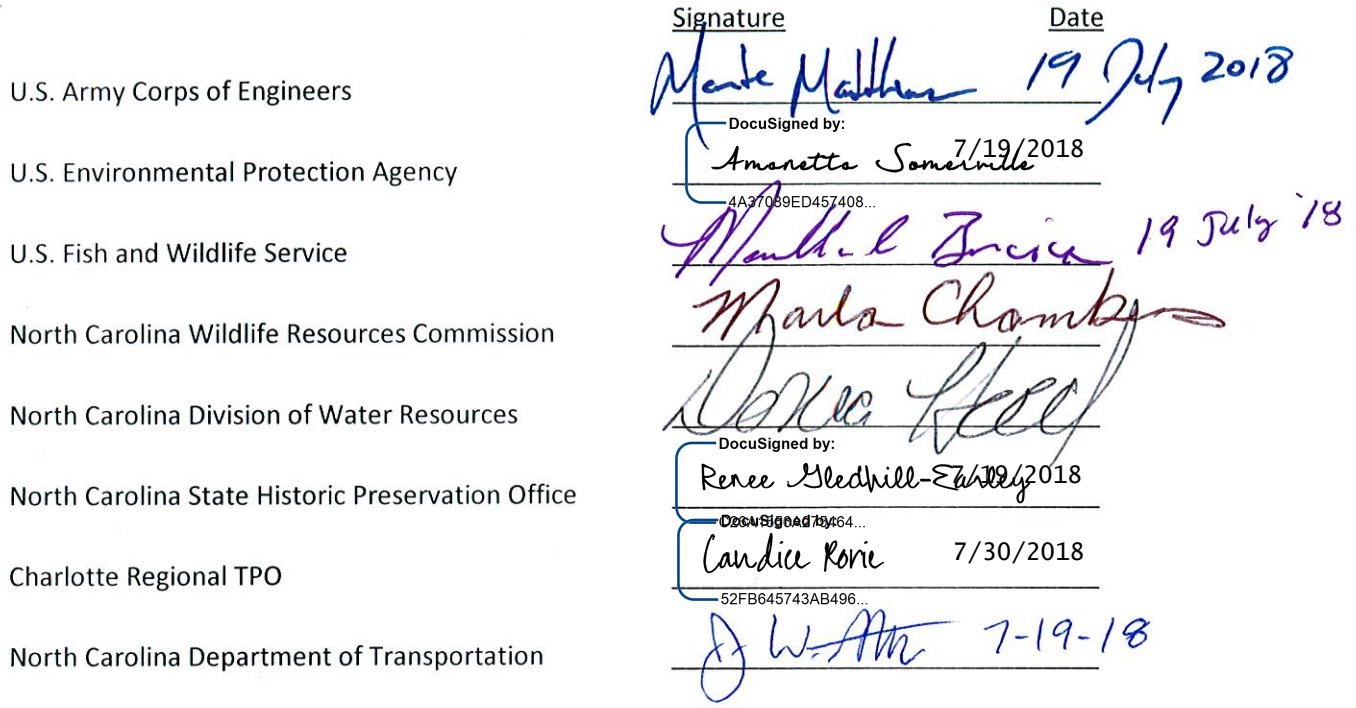 Signature Date
U.S. Army Corps of Engineers Monte Matthews 19 July 2018
DocuSigned by:
U.S. Environmental Protection Agency Amanetta Somerville 7/19/2018
4A37089ED457408...
U.S. Fish and Wildlife Service 19 July '18
North Carolina Wildlife Resources Commission Marla Chambers
North Carolina Division of Water Resources
DocuSigned by:
North Carolina State Historic Preservation Office Renee Gledhill-Earley 7/19/2018
DocuSigned by:
Charlotte Regional TPO Candice Rorie 7/30/2018
52FB645743AB496...
North Carolina Department of Transportation 7-19-18